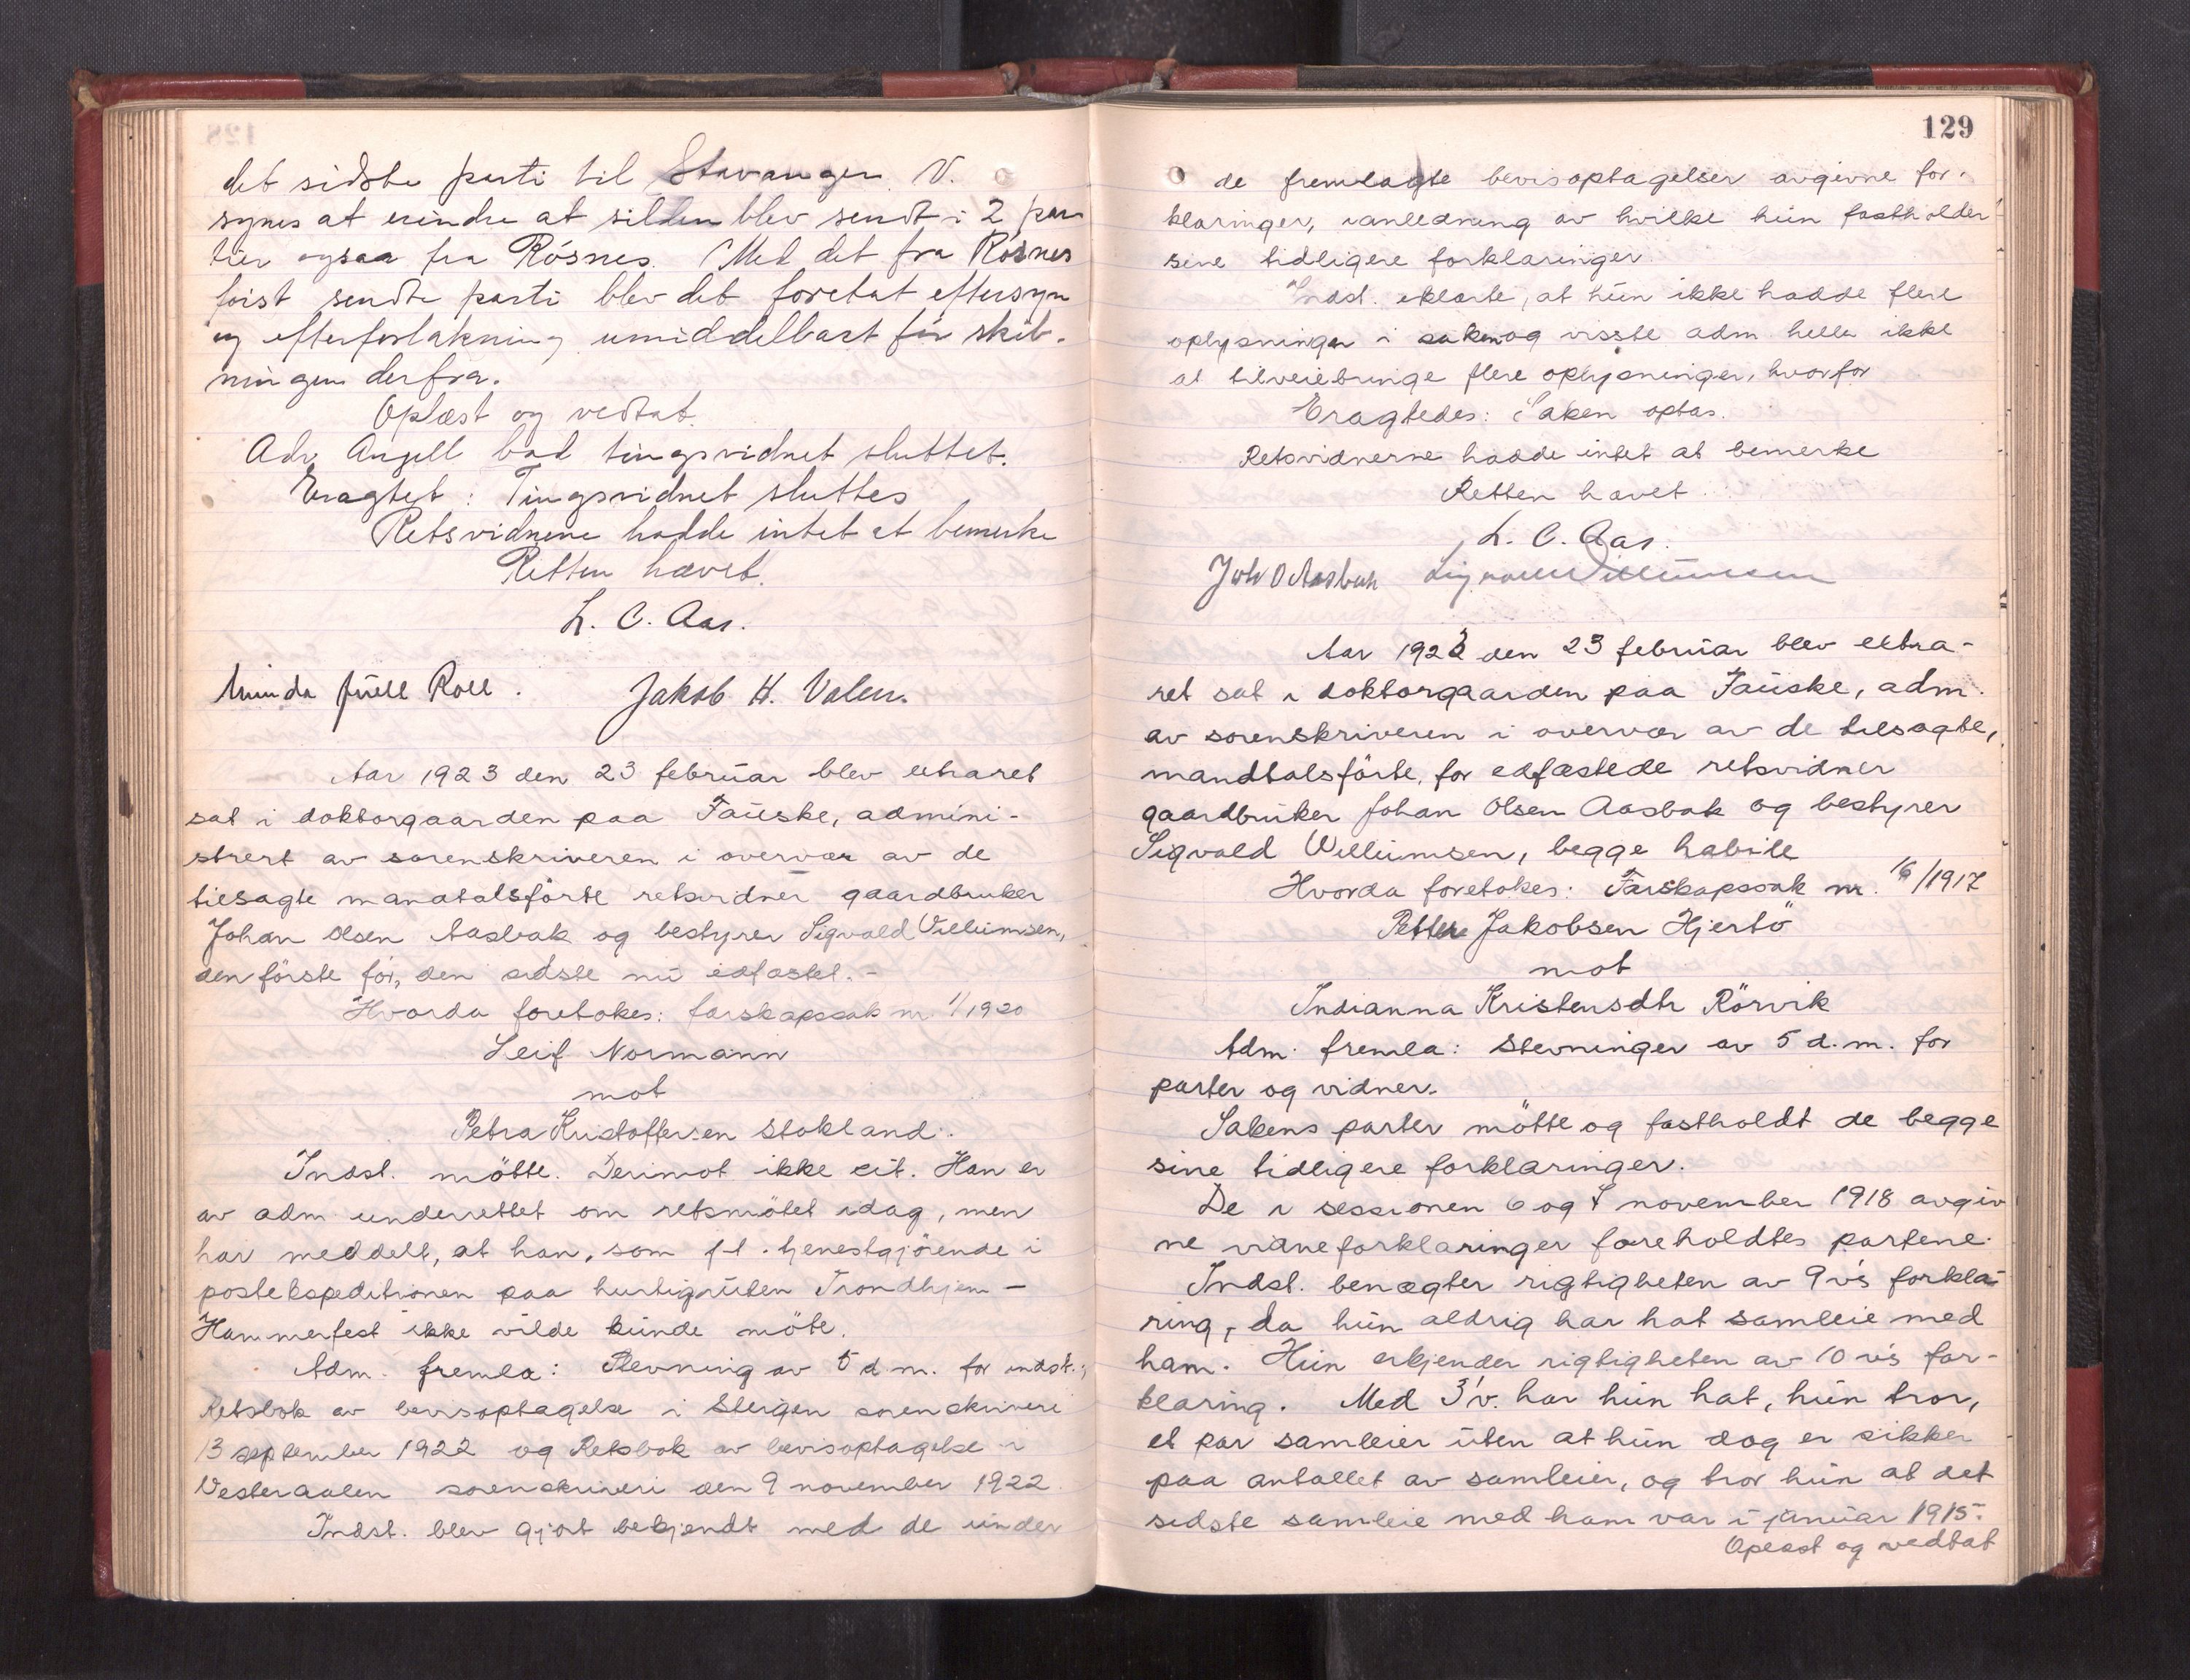 det sidste parti til Stavanger. V.
synes at erindre at silden blev sendt i 2 par
tier ogsaa fra Røsnes. Med det fra Røsnes
først sendte parti blev det foretat eftersyn
og efterforlakning umiddelbart før skib-
ningen derfra.
Oplæst og vedtat.
Adv. Angell bad tingsvidnet sluttet.
Eragtet: Tingsvidnet sluttes
Retsvidnene hadde intet at bemerke
Retten hævet.
L. C. Aas.
Minda Juell Roll. Jakob H. Valen.
Aar 1923 den 23 februar blev extraret
sat i doktorgaarden paa Fauske, admini-
strert av sorenskriveren i overvær av de
tilsagte mandtalsførte retsvidner gaardbruker
Johan Olsen Aasbak og bestyrer Sigvald Villumsen,
den förste för, den sidste nu edfæstet. -
Hvorda foretokes: farskapssak nr. 1/1920
Leif Normann
mot
Petra Kristoffersen Stokland.
Indst. mötte. Derimot ikke cit. Han er
av adm underrettet om retsmötet idag, men
har meddelt, at han, som f.t. tjenestgjörende i
postekspeditionen paa hurtigruten Trondhjem -
Hammerfest ikke vilde kunde möte.
Adm. fremla: Stevning av 5 d. m. for indst.;
Retsbok av bevisoptagelse i Steigen sorenskriveri
13 september 1922 og Retsbok av bevisoptagelse i
Vesteraalen sorenskriveri den 9 november 1922
Indst. blev gjort bekjendt med de under
129
de fremlagte bevisoptagelser avgivne for-
klaringer, ianledning av hvilke hun fastholder
sine tidligere forklaringer.
Indst. erklærte, at hun ikke hadde flere
oplysninger i saken og visste adm heller ikke
at tilveiebringe flere oplysninger, hvorfor
Eragtedes: Saken optas.
Retsvidnerne hadde intet at bemerke
Retten hævet.
L. C. Aas.
Joh O Aasbak Sigvald Willumsen
Aar 1923 den 23 februar blev extra-
ret sat i doktorgaarden paa Fauske, adm.
av sorenskriveren i overvær av de tilsagte,
mandtalsförte, for edfæstede retsvidner
gaardbruker Johan Olsen Aasbak og bestyrer
Sigvald Willumsen, begge habile
Hvorda foretokes: Farskapssak nr. 16/1917
Petter Jakobsen Hjertö
mot
Indianna Kristensdtr Rörvik
Adm. fremla: Stevninger av 5 d.m. for
parter og vidner.
Sakens parter mötte og fastholdt de begge
sine tidligere forklaringer.
De i sessionen 6 og 7 november 1918 avgiv
ne vidneforklaringer foreholdtes partene.
Indst. benægter rigtigheten av 9 v's forkla-
ring, da hun aldrig har hat samleie med
ham. Hun erkjender rigtigheten av 10 v's for-
klaring. Med 3' v. har hun hat, hun tror,
et par samleier uten at hun dog er sikker
paa antallet av samleier, og tror hun at det
sidste samleie med ham var i januar 1915.
Oplæst og vedtat